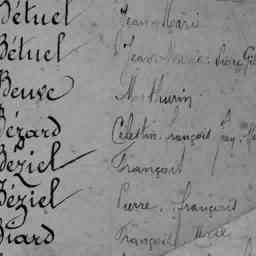 Bétuel Jean Marie
Bétuel Jean Marie
Beuve Mathurin
Bézard Celestin François
Béziel François
Béziel Pierre François
Biard François